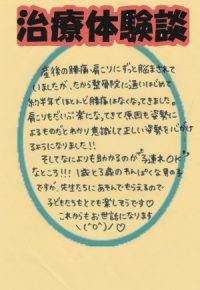 治療体験談
産後の腰痛・肩こりにずっと悩まされて
いましたが、たから整骨院に通いはじめて
約半年でほとんど腰痛はなくなってきました。
肩こりもだいぶ楽になってきて原因も姿勢に
よるものだとわかり意識して正しい姿勢を心がけ
るようになりました!!
そしてなによりも助かるのが"子連れOK"
なところ!!! 1歳と3歳のわんぱくな男の子
ですが、先生たちにあそんでもらえるので
子どもたちもとても楽しそうです♡
これからもお世話になります
\(^o^)/♡